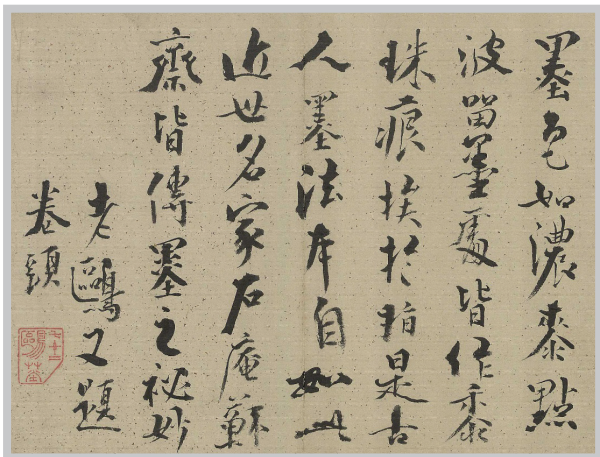 墨色如濃桼點
波畱墨處皆作黍
珠痕挨於指是古
人墨法本自如此
近世名家石庵蘇
齋皆傳墨之祕妙
老鷗又題
卷頭